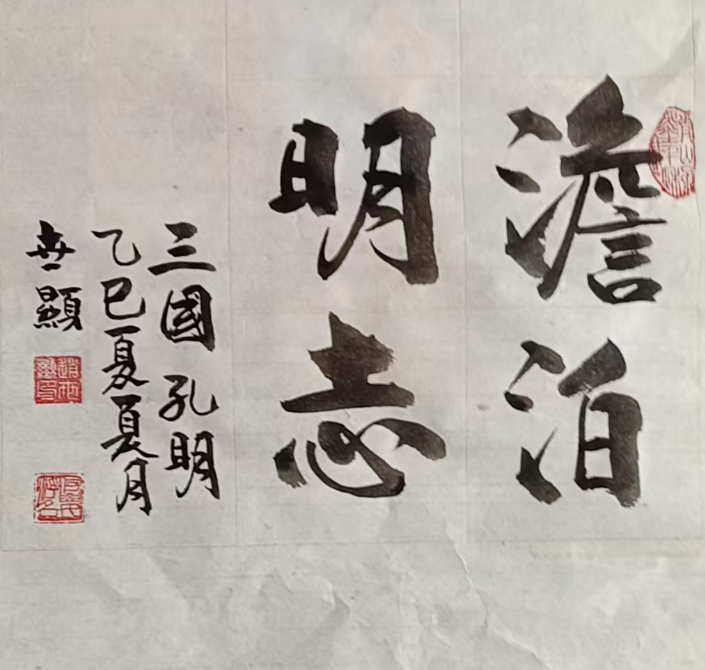 澹泊
明志
三國孔明
乙巳夏夏月
世顯